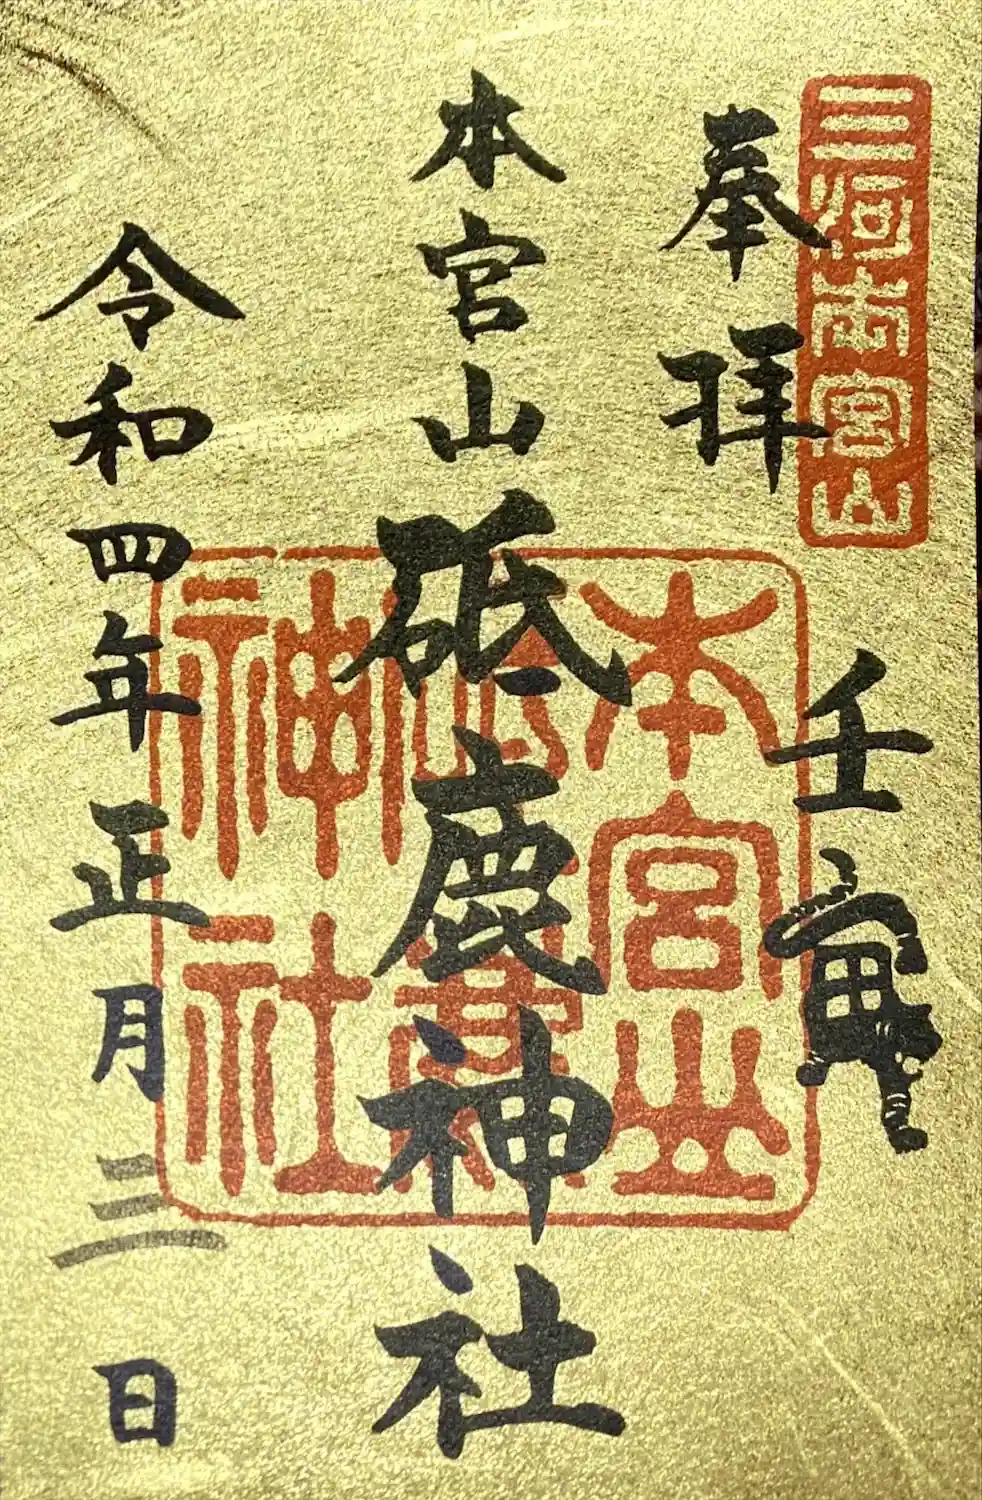 三河本宮山
奉拝
壬寅
本宮山砥鹿神社
本宮山
砥鹿
神社
令和四年正月三日